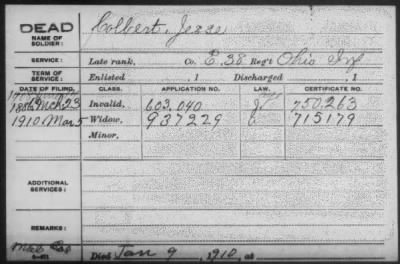 DEAD
NAME OF SOLDIER: Colbert, Jesse
SERVICE: Late rank, Co. E, 38 Reg't Ohio Inf
TERM OF SERVICE: Enlisted , 1 Discharged , 1
DATE OF FILING. CLASS. APPLICATION NO. LAW. CERTIFICATE NO.
Mch 23 Invalid, 603,040 750,263
1910 Mar 5 Widow, 937229 715179
Minor,
ADDITIONAL SERVICES:
REMARKS:
Died Jan 9, 1910, at